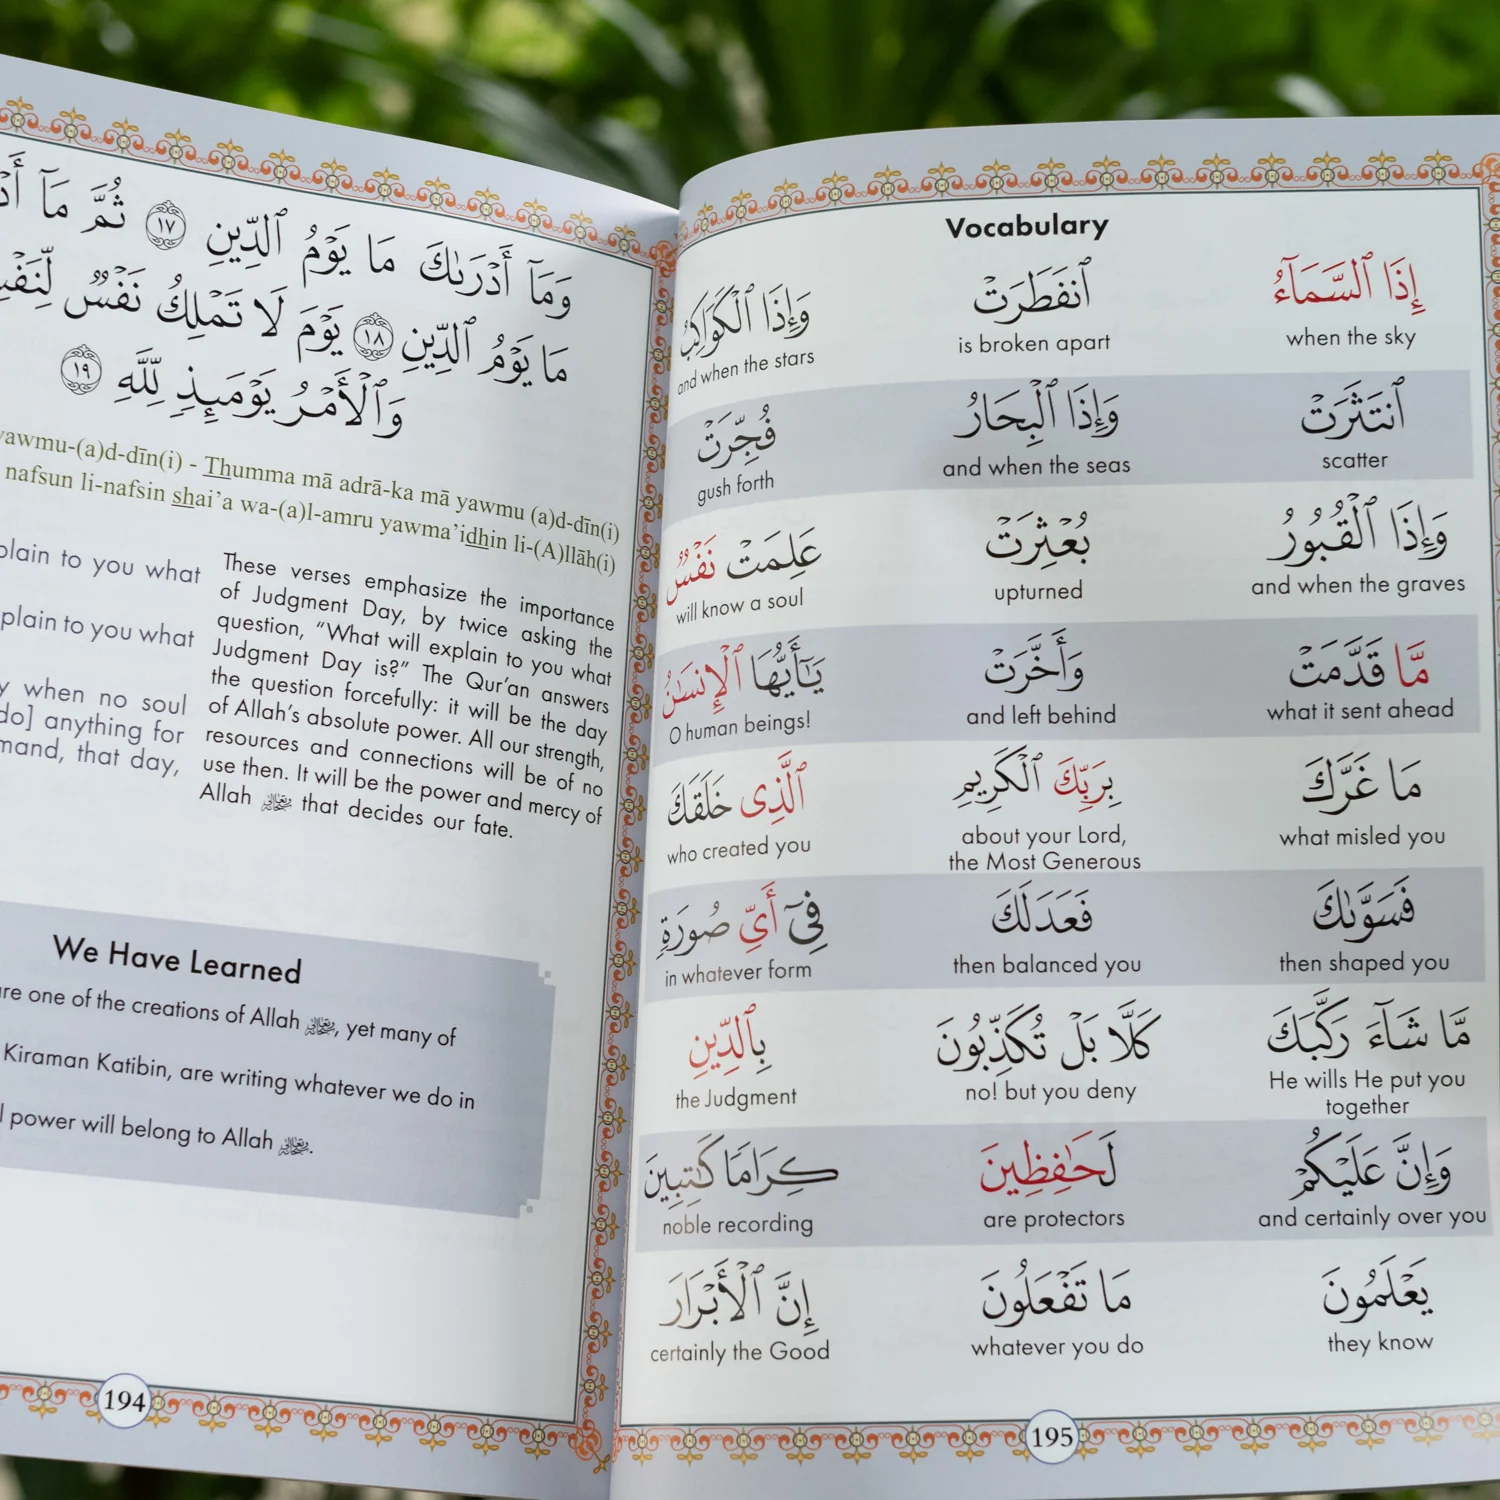 وَمَآ أَدْرَىٰكَ مَا يَوْمُ ٱلدِّينِ ١٧ ثُمَّ مَآ
مَا يَوْمُ ٱلدِّينِ ١٨ يَوْمَ لَا تَمْلِكُ نَفْسٌ
وَٱلْأَمْرُ يَوْمَئِذٍ لِّلَّهِ ١٩
yawmu-(a)d-dīn(i) - Thumma mā adrā-ka mā yawmu (a)d-dīn(i)
nafsun li-nafsin shai’a wa-(a)l-amru yawma’idhin li-(A)llāh(i)
plain to you what
plain to you what
y when no soul
do] anything for
mand, that day,
These verses emphasize the importance
of Judgment Day, by twice asking the
question, “What will explain to you what
Judgment Day is?” The Qur’an answers
the question forcefully: it will be the day
of Allah’s absolute power. All our strength,
resources and connections will be of no
use then. It will be the power and mercy of
Allah that decides our fate.
We Have Learned
are one of the creations of Allah , yet many of
Kiraman Katibin, are writing whatever we do in
l power will belong to Allah .
194
Vocabulary
إِذَا ٱلسَّمَآءُ ٱنفَطَرَتْ وَإِذَا ٱلْكَوَاكِبُ
when the sky is broken apart and when the stars
ٱنتَثَرَتْ وَإِذَا ٱلْبِحَارُ فُجِّرَتْ
scatter and when the seas gush forth
وَإِذَا ٱلْقُبُورُ بُعْثِرَتْ عَلِمَتْ نَفْسٌ
and when the graves upturned will know a soul
مَّا قَدَّمَتْ وَأَخَّرَتْ يَـٰٓأَيُّهَا ٱلْإِنسَـٰنُ
what it sent ahead and left behind O human beings!
مَا غَرَّكَ بِرَبِّكَ ٱلْكَرِيمِ ٱلَّذِى خَلَقَكَ
what misled you about your Lord, who created you
the Most Generous
فَسَوَّىٰكَ فَعَدَلَكَ فِىٓ أَىِّ صُورَةٍ
then shaped you then balanced you in whatever form
مَّا شَآءَ رَكَّبَكَ كَلَّا بَلْ تُكَذِّبُونَ بِٱلدِّينِ
He wills He put you no! but you deny the Judgment
together
وَإِنَّ عَلَيْكُمْ لَحَـٰفِظِينَ كِرَامًا كَـٰتِبِينَ
and certainly over you are protectors noble recording
يَعْلَمُونَ مَا تَفْعَلُونَ إِنَّ ٱلْأَبْرَارَ
they know whatever you do certainly the Good
195